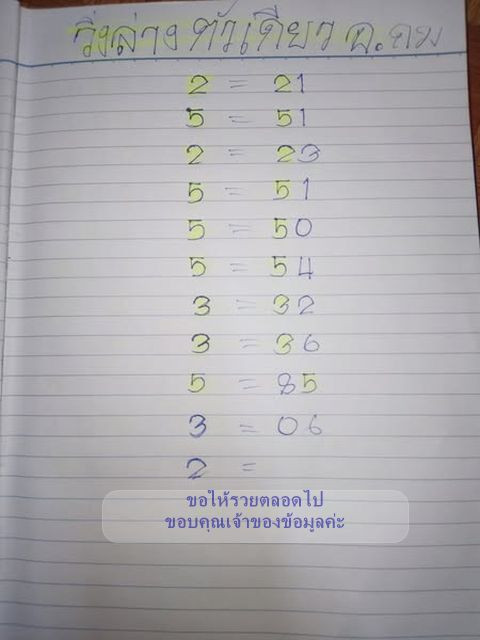 วิ่งล่าง ตัวเดียว อ.ถม
2 = 21
5 = 51
2 = 23
5 = 51
5 = 50
5 = 54
3 = 32
3 = 36
5 = 85
3 = 06
2 =
ขอให้รวยตลอดไป
ขอบคุณเจ้าของข้อมูลค่ะ